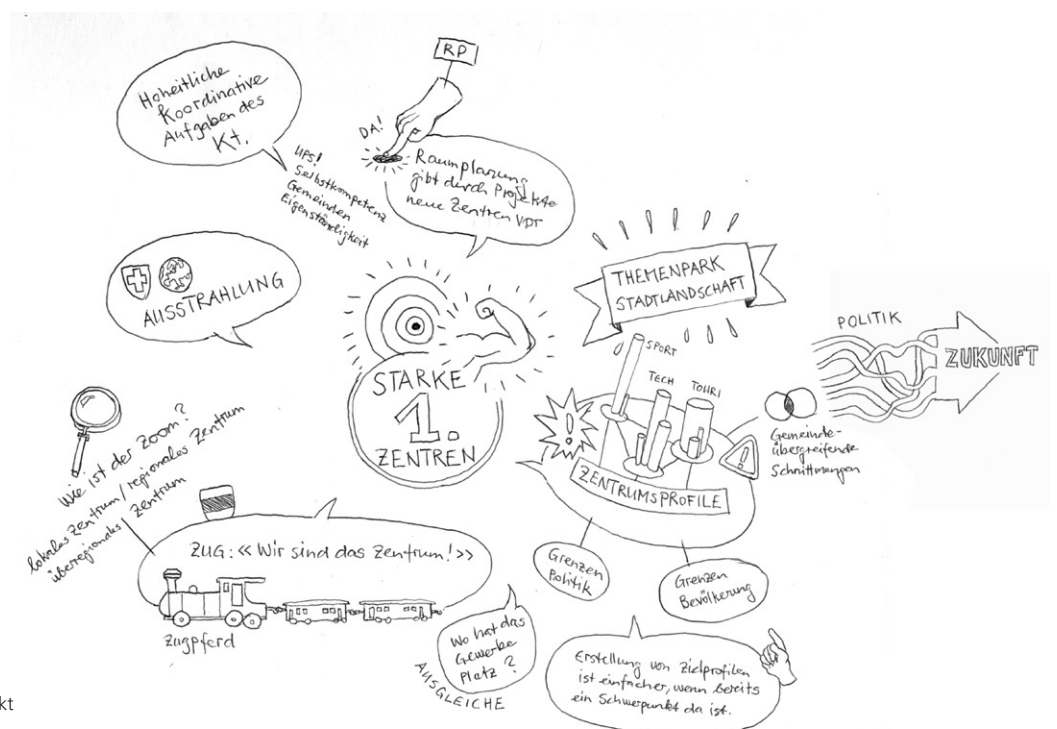 Hoheitliche
Koordinative
Aufgaben des
Kt.
UPS!
Selbstkompetenz
Gemeinden
Eigenständigkeit
RP
DA!
Raumplanung
gibt durch Projekte
neue Zentren vor
AUSSTRAHLUNG
STARKE
1.
ZENTREN
THEMENPARK
STADTLANDSCHAFT
SPORT
TECH
TOURI
ZENTRUMSPROFILE
Grenzen
Politik
Grenzen
Bevölkerung
Gemeinde-
übergreifende
Schnittmengen
POLITIK
ZUKUNFT
Wie ist der Zoom?
lokales Zentrum/regionales Zentrum
überregionales Zentrum
ZUG: «Wir sind das Zentrum!»
Zugpferd
Wo hat das
Gewerbe
Platz?
AUSGLEICHE
Erstellung von Zielprofilen
ist einfacher, wenn bereits
ein Schwerpunkt da ist.
kt